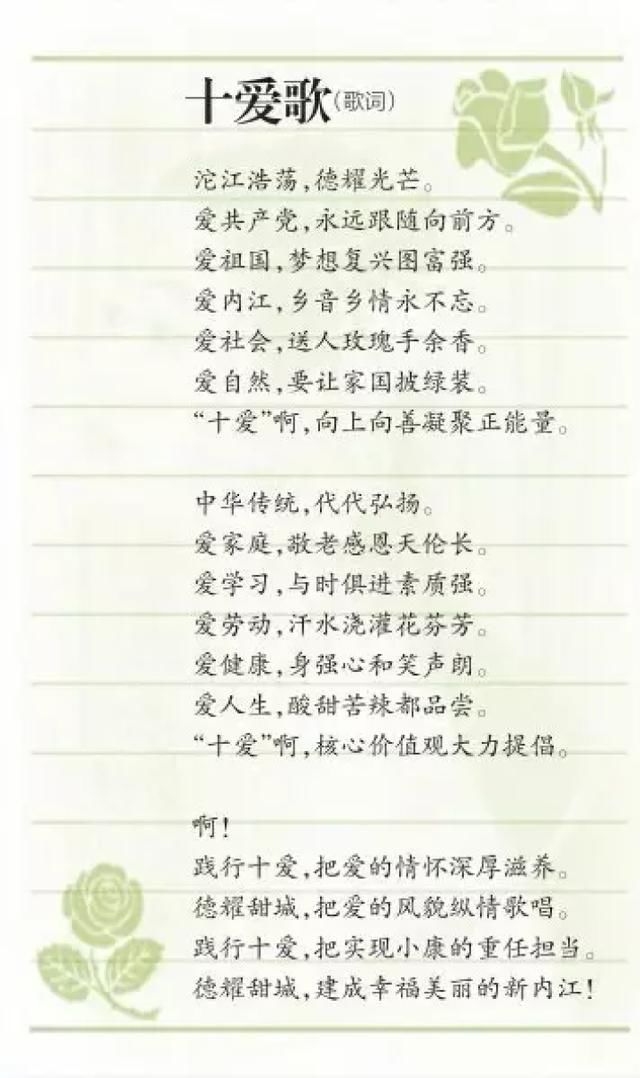 十爱歌(歌词)
沱江浩荡,德耀光芒。
爱共产党,永远跟随向前方。
爱祖国,梦想复兴图富强。
爱内江,乡音乡情永不忘。
爱社会,送人玫瑰手余香。
爱自然,要让家国披绿装。
“十爱”啊,向上向善凝聚正能量。
中华传统,代代弘扬。
爱家庭,敬老感恩天伦长。
爱学习,与时俱进素质强。
爱劳动,汗水浇灌花芬芳。
爱健康,身强心和笑声朗。
爱人生,酸甜苦辣都品尝。
“十爱”啊,核心价值观大力提倡。
啊!
践行十爱,把爱的情怀深厚滋养。
德耀甜城,把爱的风貌纵情歌唱。
践行十爱,把实现小康的重任担当。
德耀甜城,建成幸福美丽的新内江!